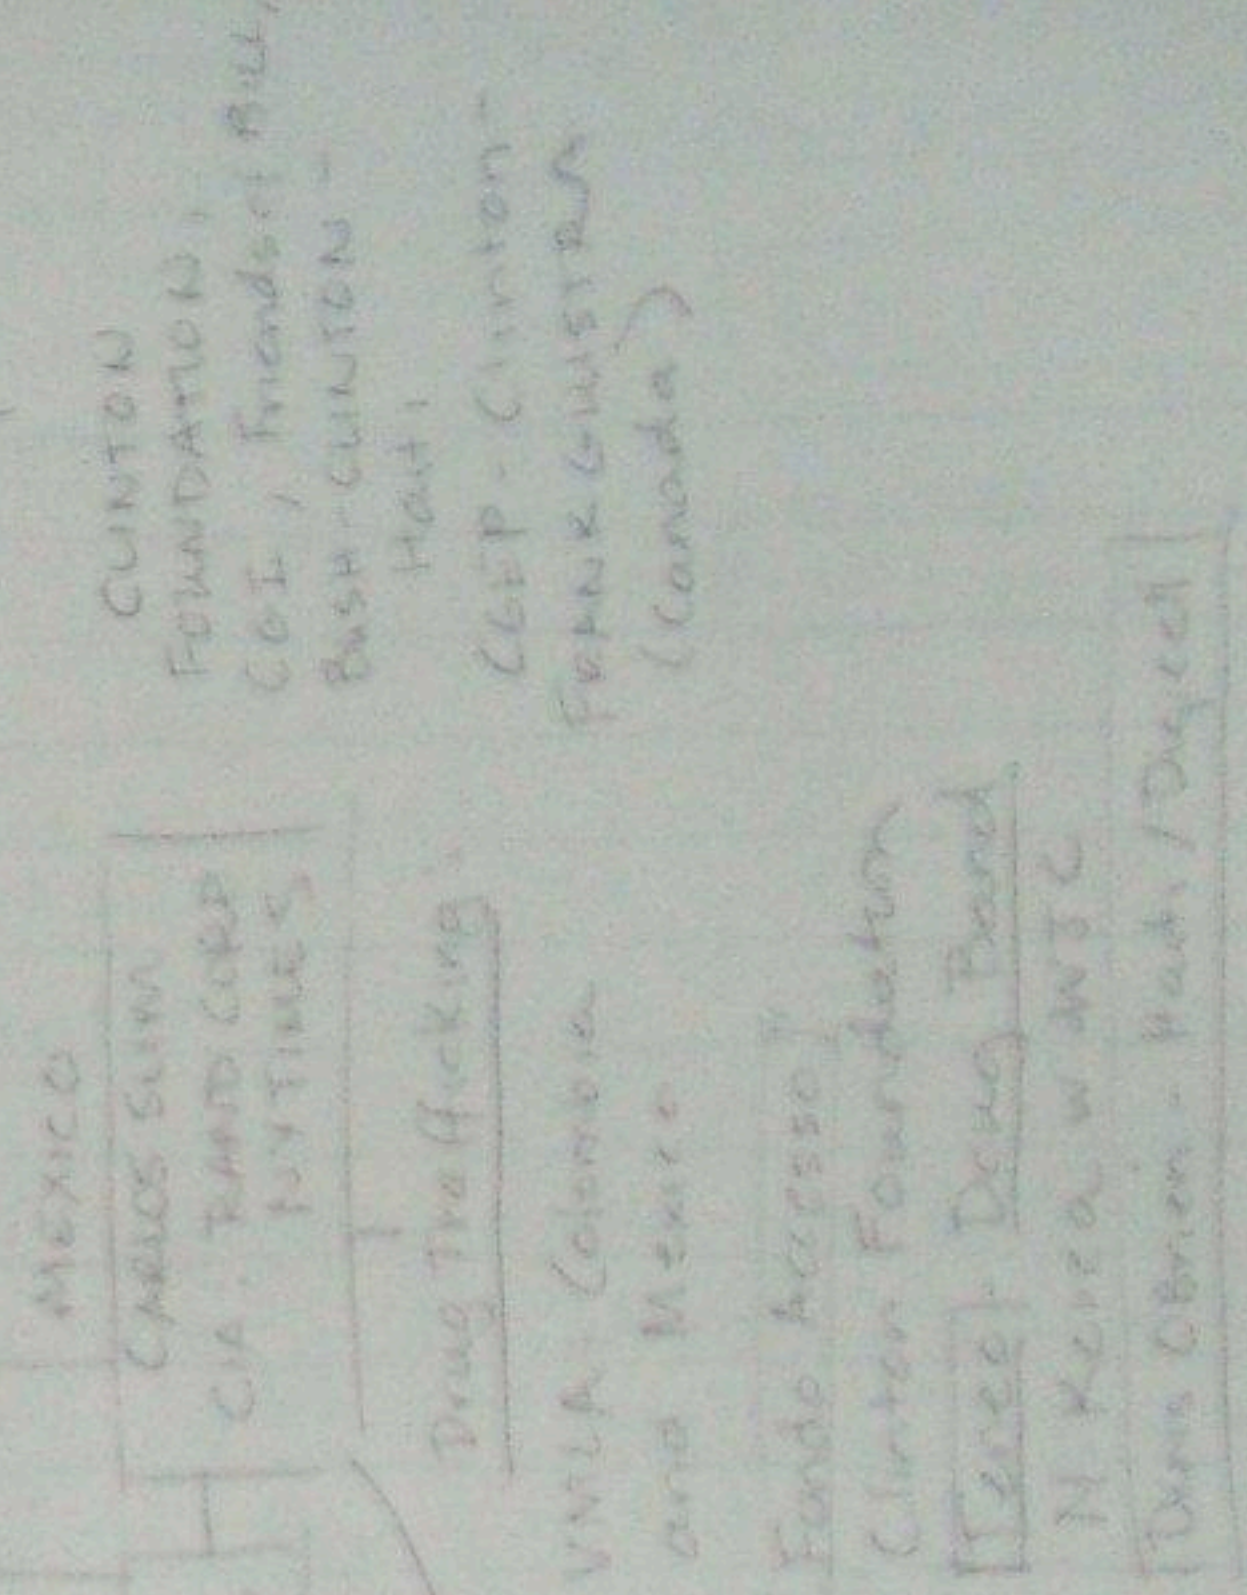 MEXICO
CARLOS SLIM
CIA. RAND CORP
NYTIMES
Drug Trafficking
Colombia
and Mexico
Fondo Accesso
Clinton Foundation
Teneo - Doug Band
N Korea w WJC
Denis OBrien - Haiti / Digicel
CLINTON
FOUNDATION,
CGI, Friends of Bill,
BUSH-CLINTON -
Haiti
CGEP - Clinton -
FRANK GUISTRA
(Canada)